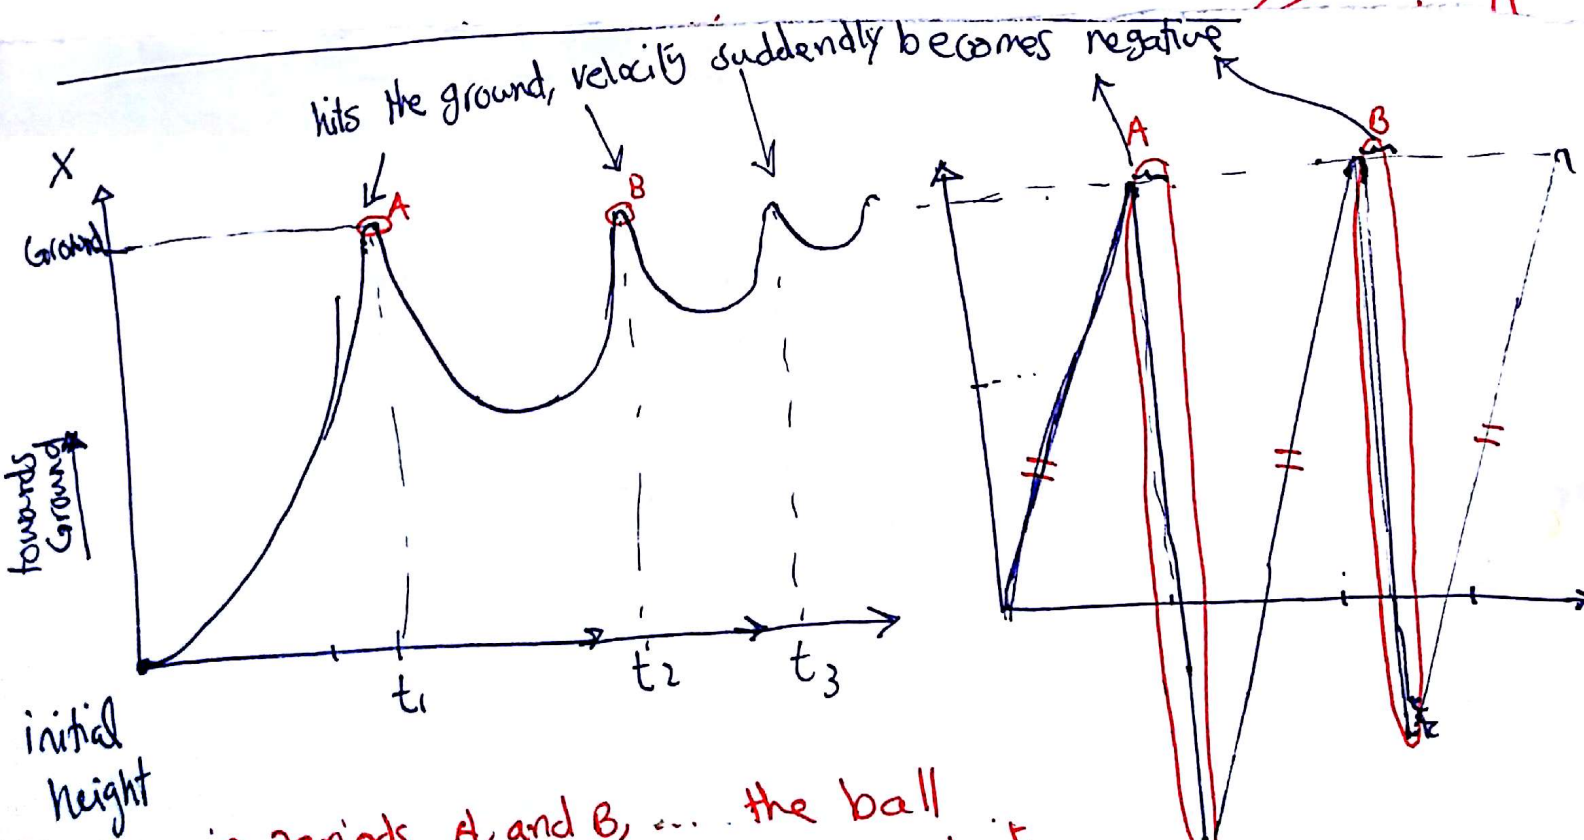 hits the ground, velocity suddendly becomes negative
X
A
B
A
B
Ground
towards
Ground
t1
t2
t3
initial
height
in periods A, and B, .... the ball